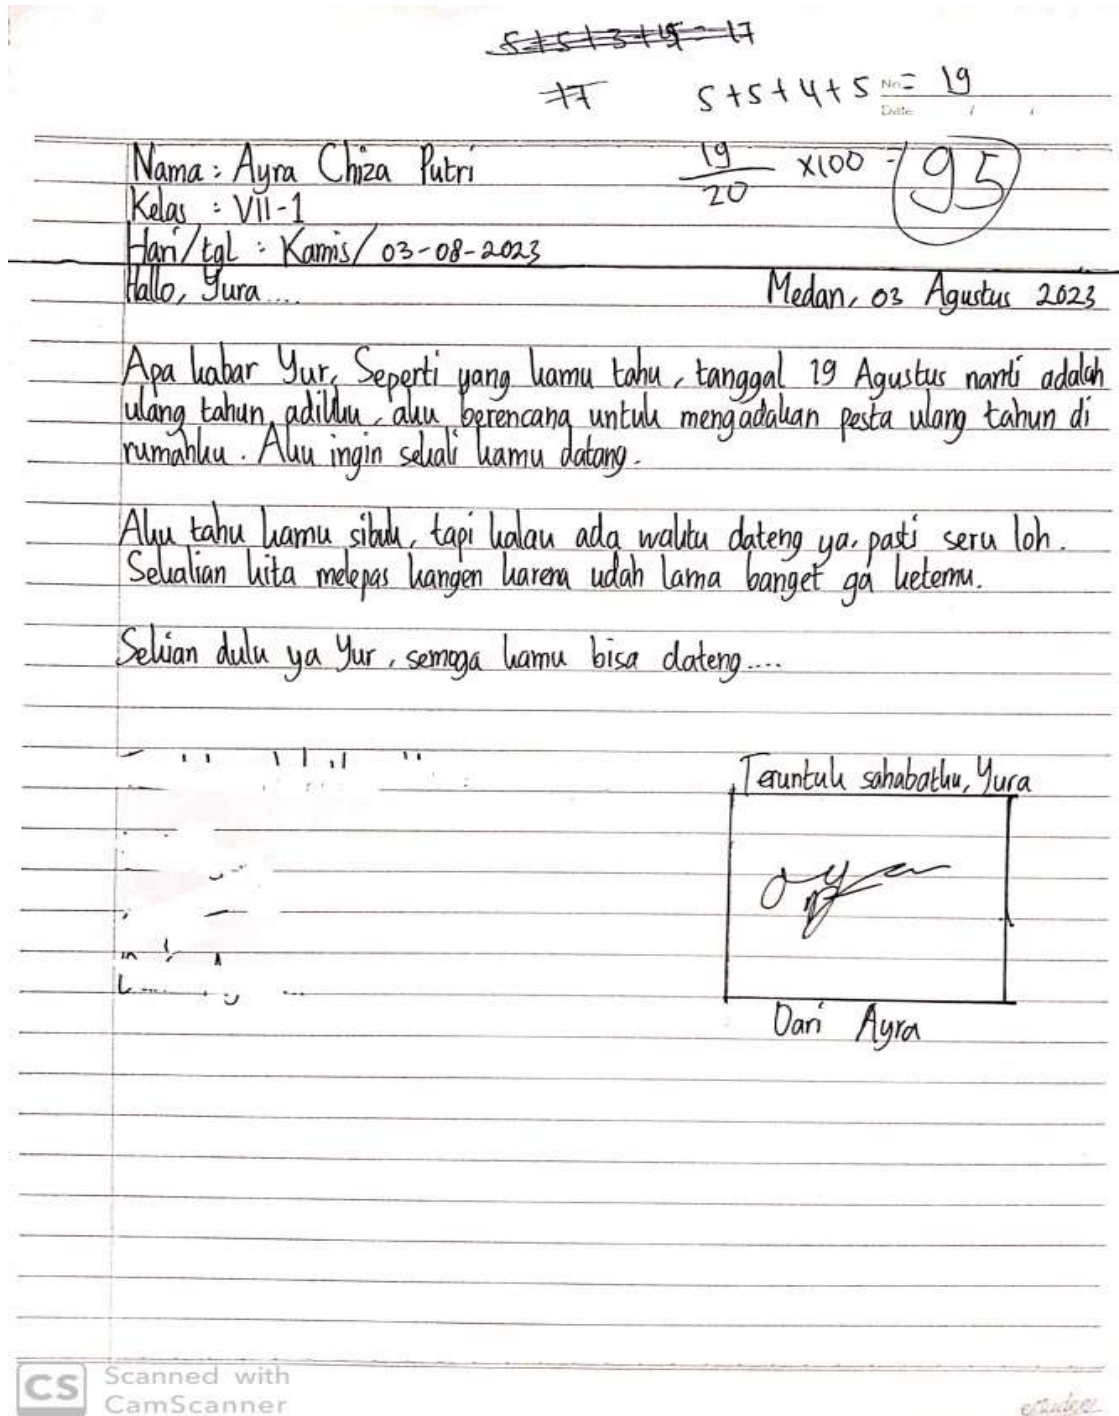 5+5+3+4=17
17
5+5+4+5 = 19
No.
Date / /
19/20 x100 = 95
Nama : Ayra Chiza Putri
Kelas : VII-1
Hari/tgl : Kamis/ 03-08-2023
Hallo, Yura....
Medan, 03 Agustus 2023
Apa kabar Yur, Seperti yang kamu tahu, tanggal 19 Agustus nanti adalah
ulang tahun adikku, aku berencana untuk mengadakan pesta ulang tahun di
rumahku. Aku ingin sekali kamu datang.
Aku tahu kamu sibuk, tapi kalau ada waktu dateng ya, pasti seru loh.
Sekalian kita melepas kangen karena udah lama banget ga ketemu.
Sekian dulu ya Yur, semoga kamu bisa dateng....
Teruntuk sahabatku, Yura
Dari Ayra
CS Scanned with
CamScanner